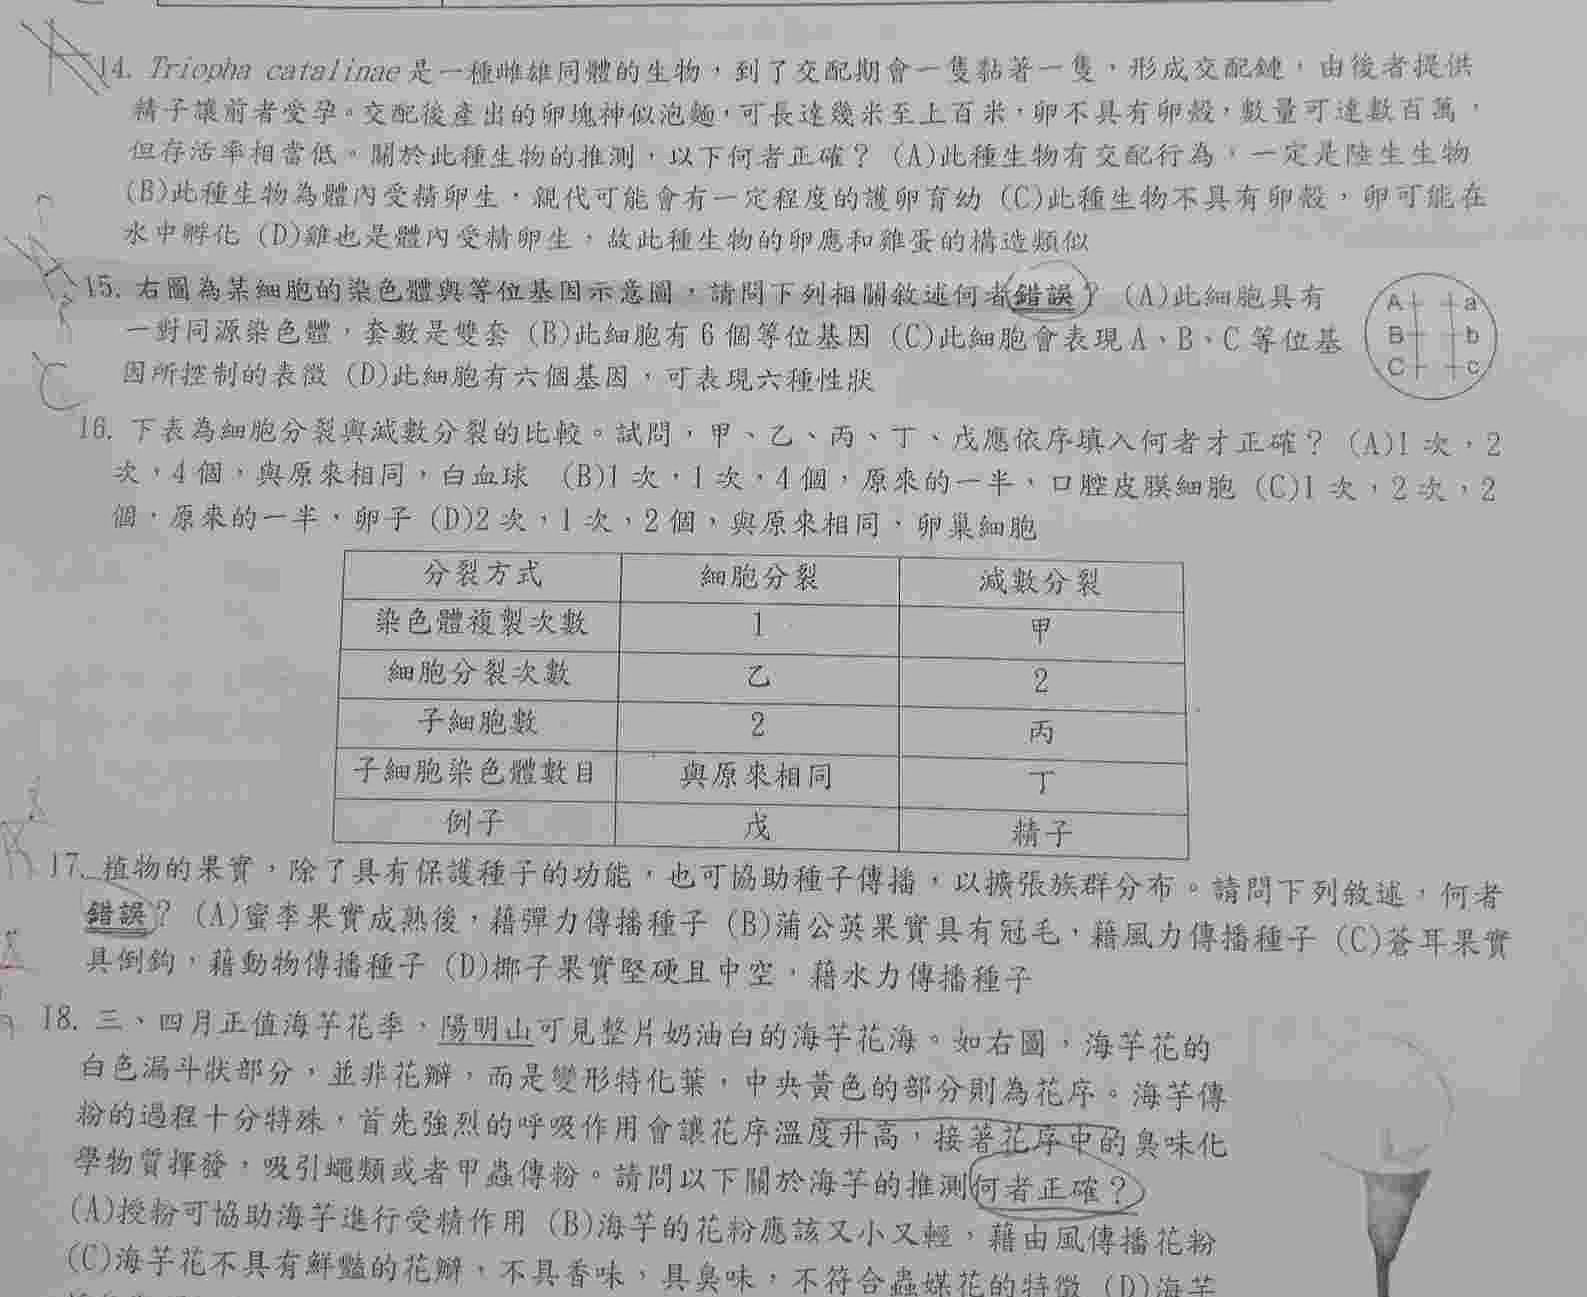 14. Triopha catalinae 是一種雌雄同體的生物，到了交配期會一隻黏著一隻，形成交配鏈，由後者提供
精子讓前者受孕。交配後產出的卵塊神似泡麵，可長達幾米至上百米，卵不具有卵殼，數量可達數百萬，
但存活率相當低。關於此種生物的推測，以下何者正確？ (A)此種生物有交配行為，一定是陸生生物
(B)此種生物為體內受精卵生，親代可能會有一定程度的護卵育幼 (C)此種生物不具有卵殼，卵可能在
水中孵化 (D)雞也是體內受精卵生，故此種生物的卵應和雞蛋的構造類似
15. 右圖為某細胞的染色體與等位基因示意圖，請問下列相關敘述何者錯誤？ (A)此細胞具有
一對同源染色體，套數是雙套 (B)此細胞有 6 個等位基因 (C)此細胞會表現 A、B、C 等位基
因所控制的表徵 (D)此細胞有六個基因，可表現六種性狀
A a
B b
C c
C
16. 下表為細胞分裂與減數分裂的比較。試問，甲、乙、丙、丁、戊應依序填入何者才正確？ (A)1 次，2
次，4 個，與原來相同，白血球 (B)1 次，1 次，4 個，原來的一半，口腔皮膜細胞 (C)1 次，2 次，2
個，原來的一半，卵子 (D)2 次，1 次，2 個，與原來相同，卵巢細胞
分裂方式 細胞分裂 減數分裂
染色體複製次數 1 甲
細胞分裂次數 乙 2
子細胞數 2 丙
子細胞染色體數目 與原來相同 丁
例子 戊 精子
17. 植物的果實，除了具有保護種子的功能，也可協助種子傳播，以擴張族群分布。請問下列敘述，何者
錯誤？ (A)蜜李果實成熟後，藉彈力傳播種子 (B)蒲公英果實具有冠毛，藉風力傳播種子 (C)蒼耳果實
具倒鉤，藉動物傳播種子 (D)椰子果實堅硬且中空，藉水力傳播種子
18. 三、四月正值海芋花季，陽明山可見整片奶油白的海芋花海。如右圖，海芋花的
白色漏斗狀部分，並非花瓣，而是變形特化葉，中央黃色的部分則為花序。海芋傳
粉的過程十分特殊，首先強烈的呼吸作用會讓花序溫度升高，接著花序中的臭味化
學物質揮發，吸引蠅類或者甲蟲傳粉。請問以下關於海芋的推測何者正確？
(A)授粉可協助海芋進行受精作用 (B)海芋的花粉應該又小又輕，藉由風傳播花粉
(C)海芋花不具有鮮豔的花瓣，不具香味，具臭味，不符合蟲媒花的特徵 (D)海芋